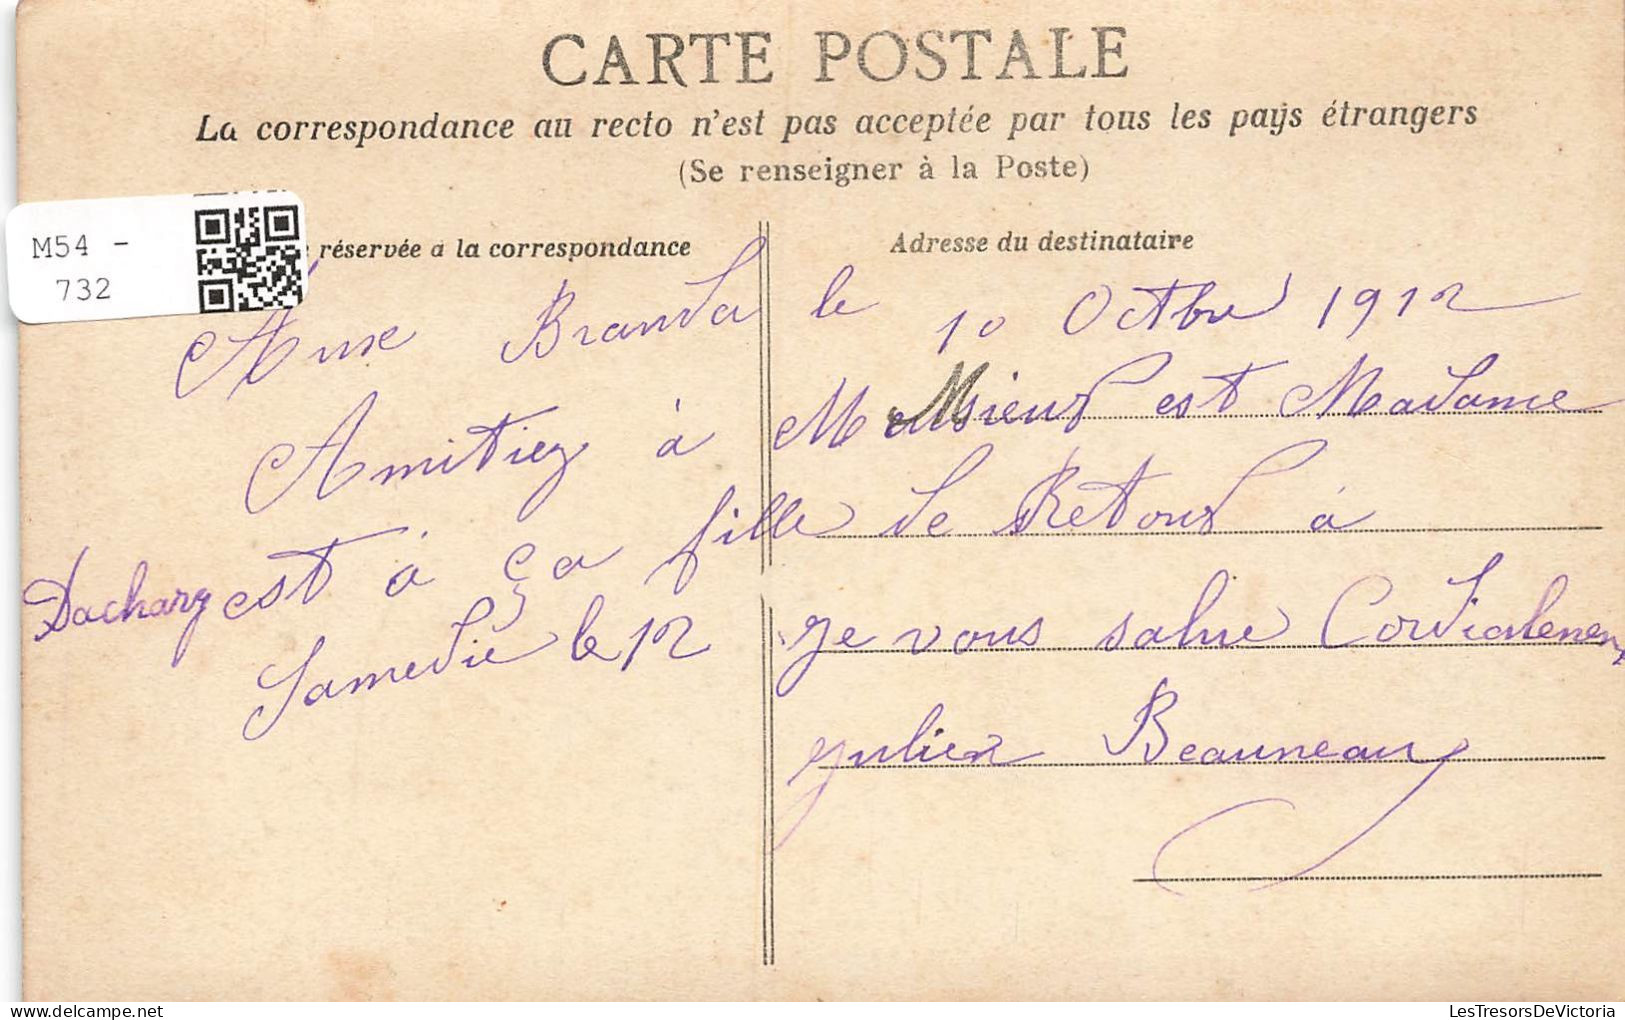 CARTE POSTALE
La correspondance au recto n'est pas acceptée par tous les pays étrangers
(Se renseigner à la Poste)
M54 -
732
réservée à la correspondance
Adresse du destinataire
Aux Branda le 10 Octbre 1912
Amitiez à Monsieur est Madame
Dacharry est à ça fille de Retour à
Samedie le 12 je vous salue Cordialemen
julien Beauneau
LesTresorsDeVictoria